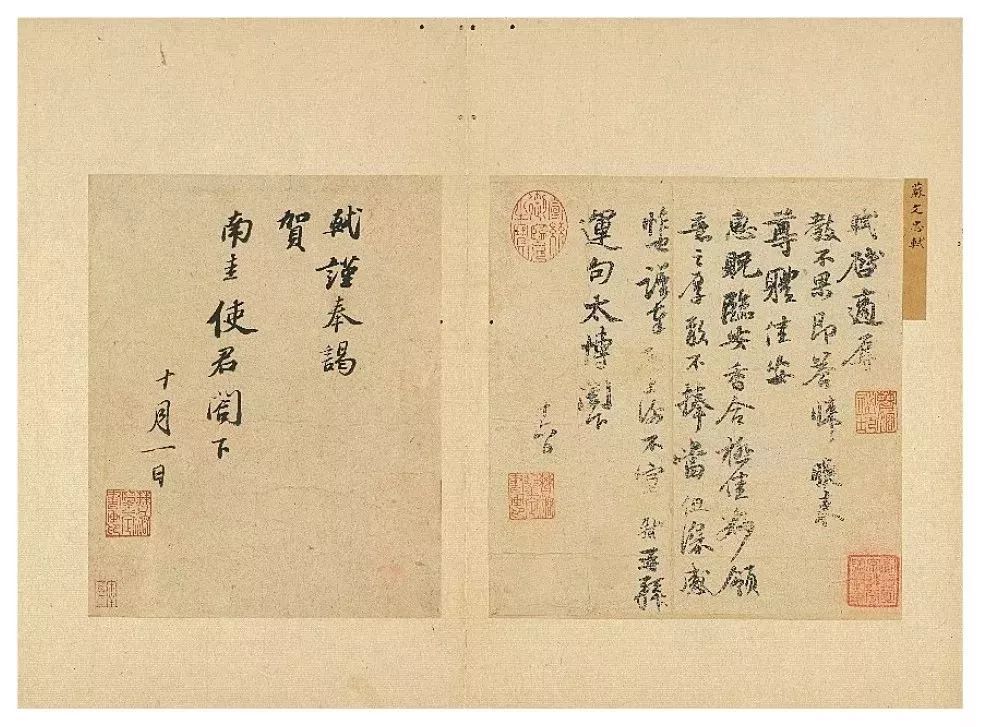 蘇文忠軾
軾啓適辱
教不果即答悚悚晚來
尊體佳安
惠貺臨安香合極佳妙領
意之厚敢不捧當但深感
怍也謹奉啓上謝不宣軾再拜
運句太博閤下
十六日
軾謹奉謁
賀
南圭使君閤下
十月一日